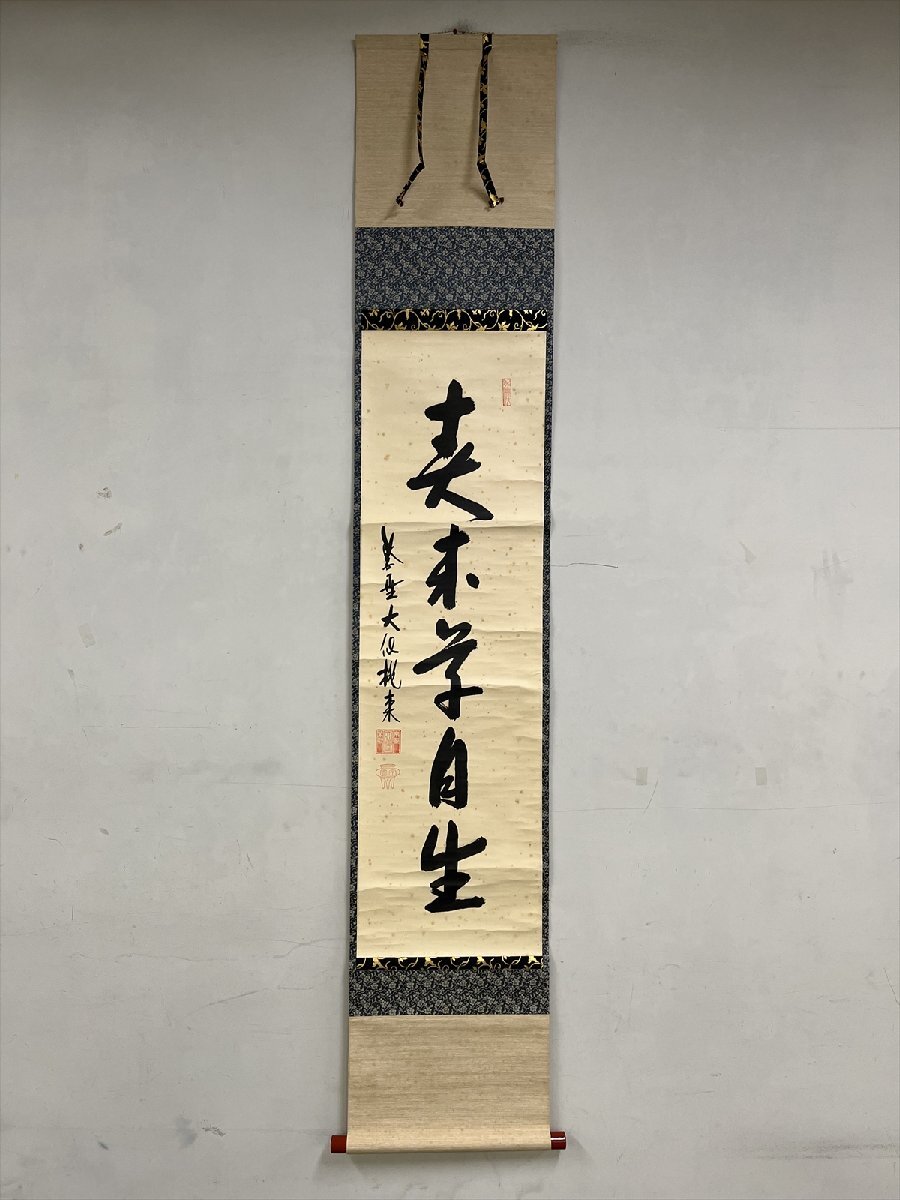 春来草自生
大仙桃東